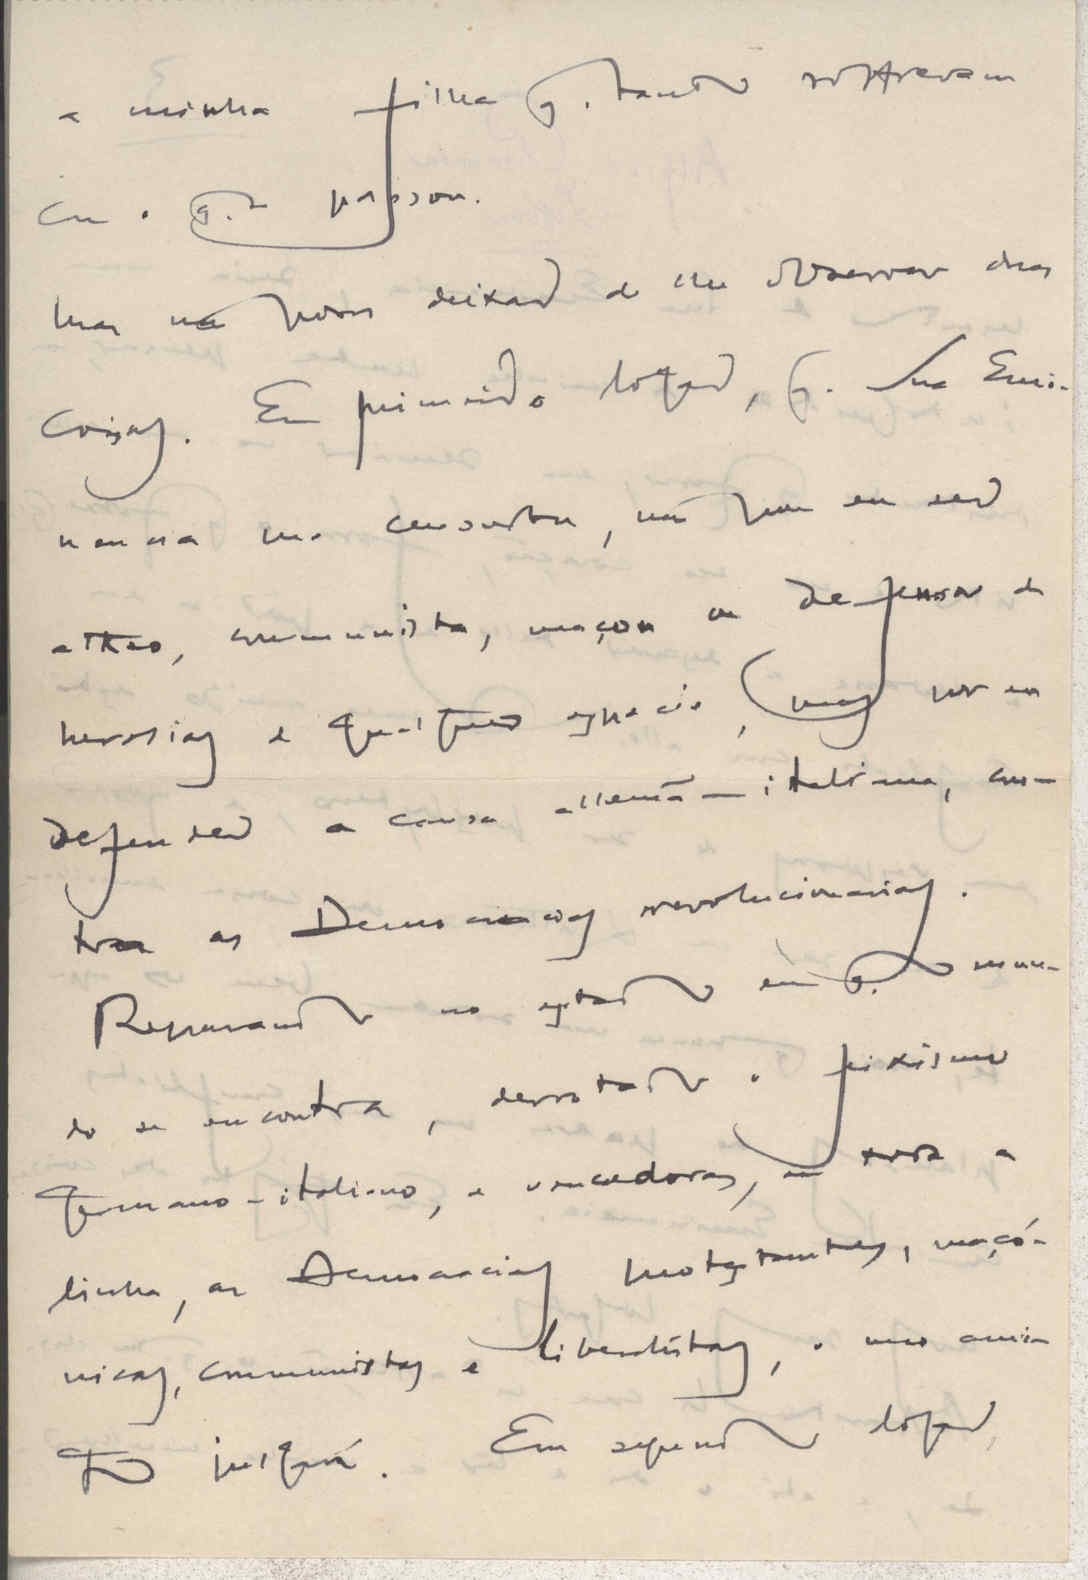 a minha filha q. tanto soffreram
com o q. se passou.
Mas não posso deixar de lhe observar duas
coisas. Em primeiro logar, q. Sua Emi-
nencia me censurou, não por eu ser
atheo, communista, maçon ou defensor de
heresias de qualquer especie, mas por eu
defender a causa allemã-italiana, con-
tra as Democracias revolucionarias.
Reparando no estado em q. o mun-
do se encontra, derrotado o fixismo
germano-italiano, e vencedoras, em toda a
linha, as Democracias protestantes, maçó-
nicas, communistas e liberalistas, o meu ami-
go julgará. Em segundo logar,